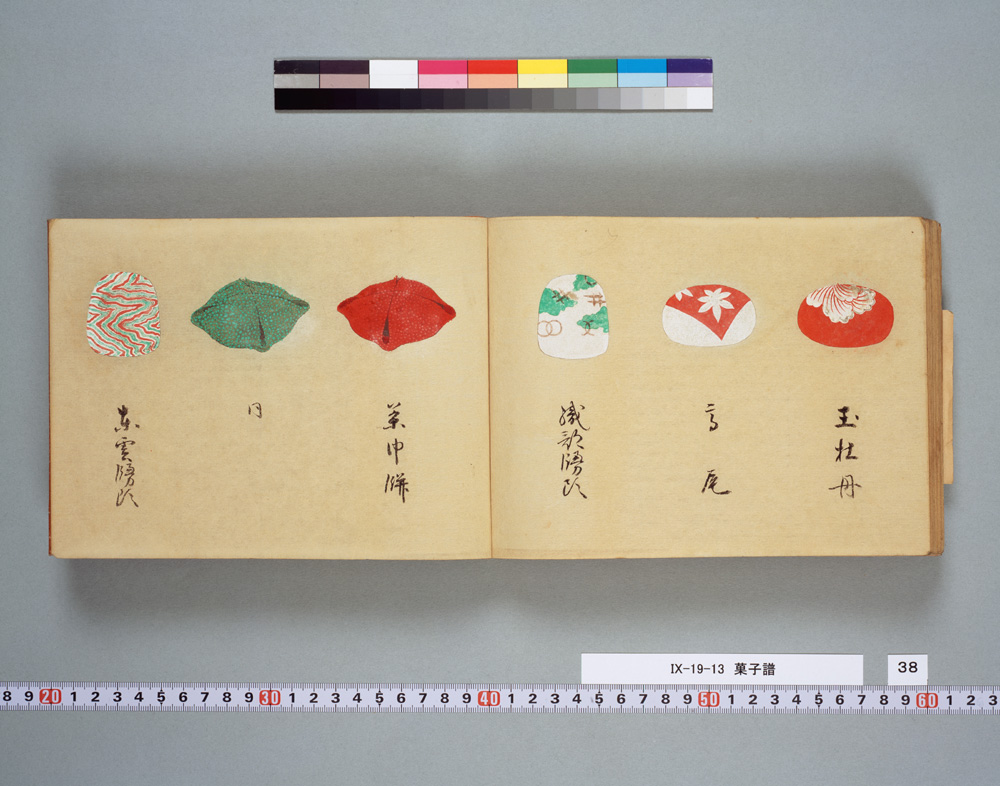 玉牡丹
高尾
織部饅頭
茶巾餅
同
東雲饅頭
IX-19-13 菓子譜
38
8 9 20 1 2 3 4 5 6 7 8 9 30 1 2 3 4 5 6 7 8 9 40 1 2 3 4 5 6 7 8 9 50 1 2 3 4 5 6 7 8 9 60 1 2 3